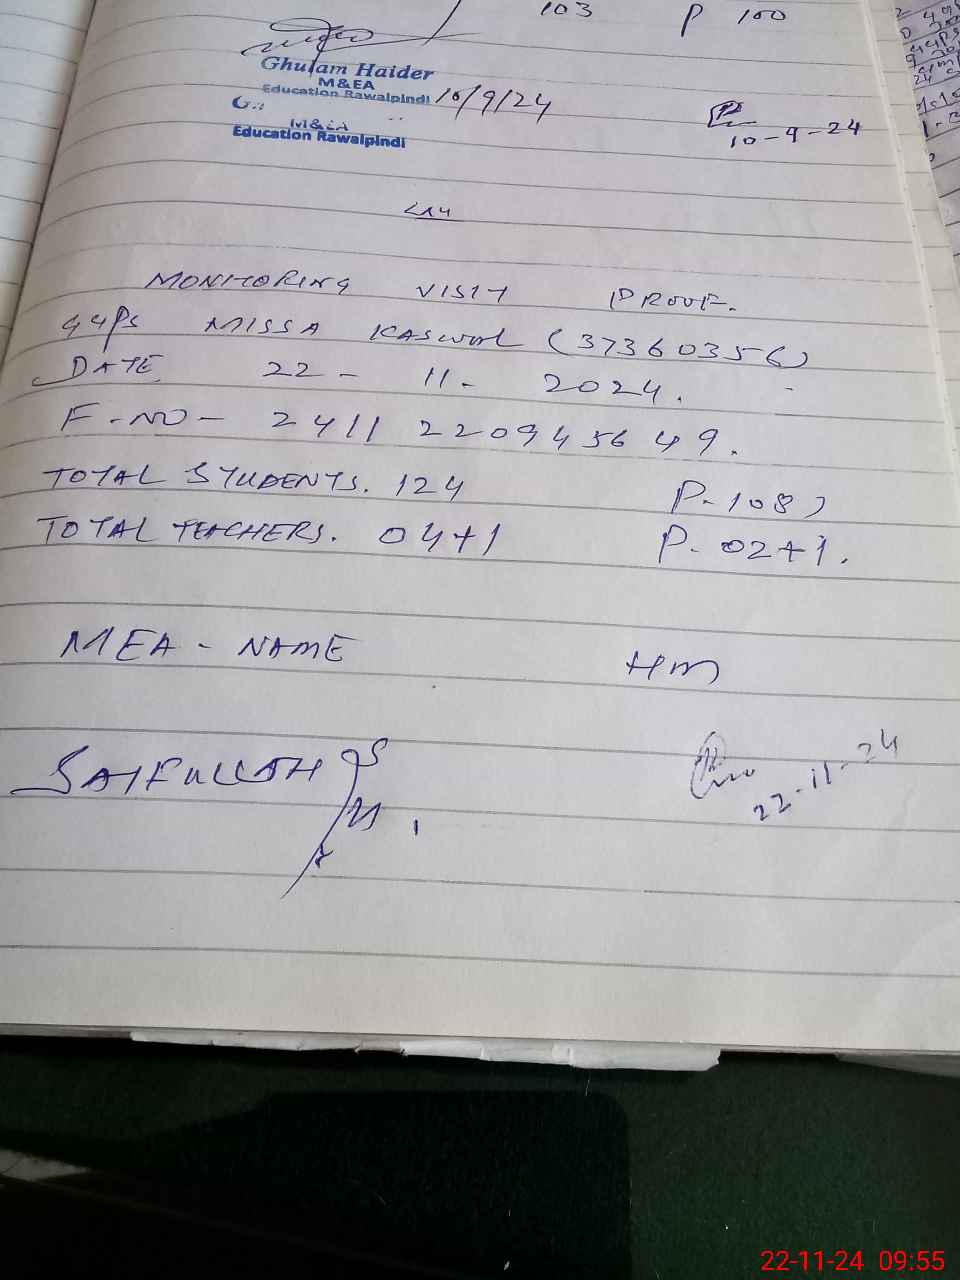 103 P 100
Ghulam Haider
M&EA
Education Rawalpindi 10/9/24
G..
M&EA
Education Rawalpindi
10-9-24
MONITORING VISIT PROOF.
GGPS MISSA KASWAL (37360356)
DATE 22-11-2024.
F-NO- 2411 2209456 49.
TOTAL STUDENTS. 124 P-108)
TOTAL TEACHERS. 04+1 P-02+1.
MEA-NAME HM
SAIFULLAH
22-11-24
22-11-24 09:55